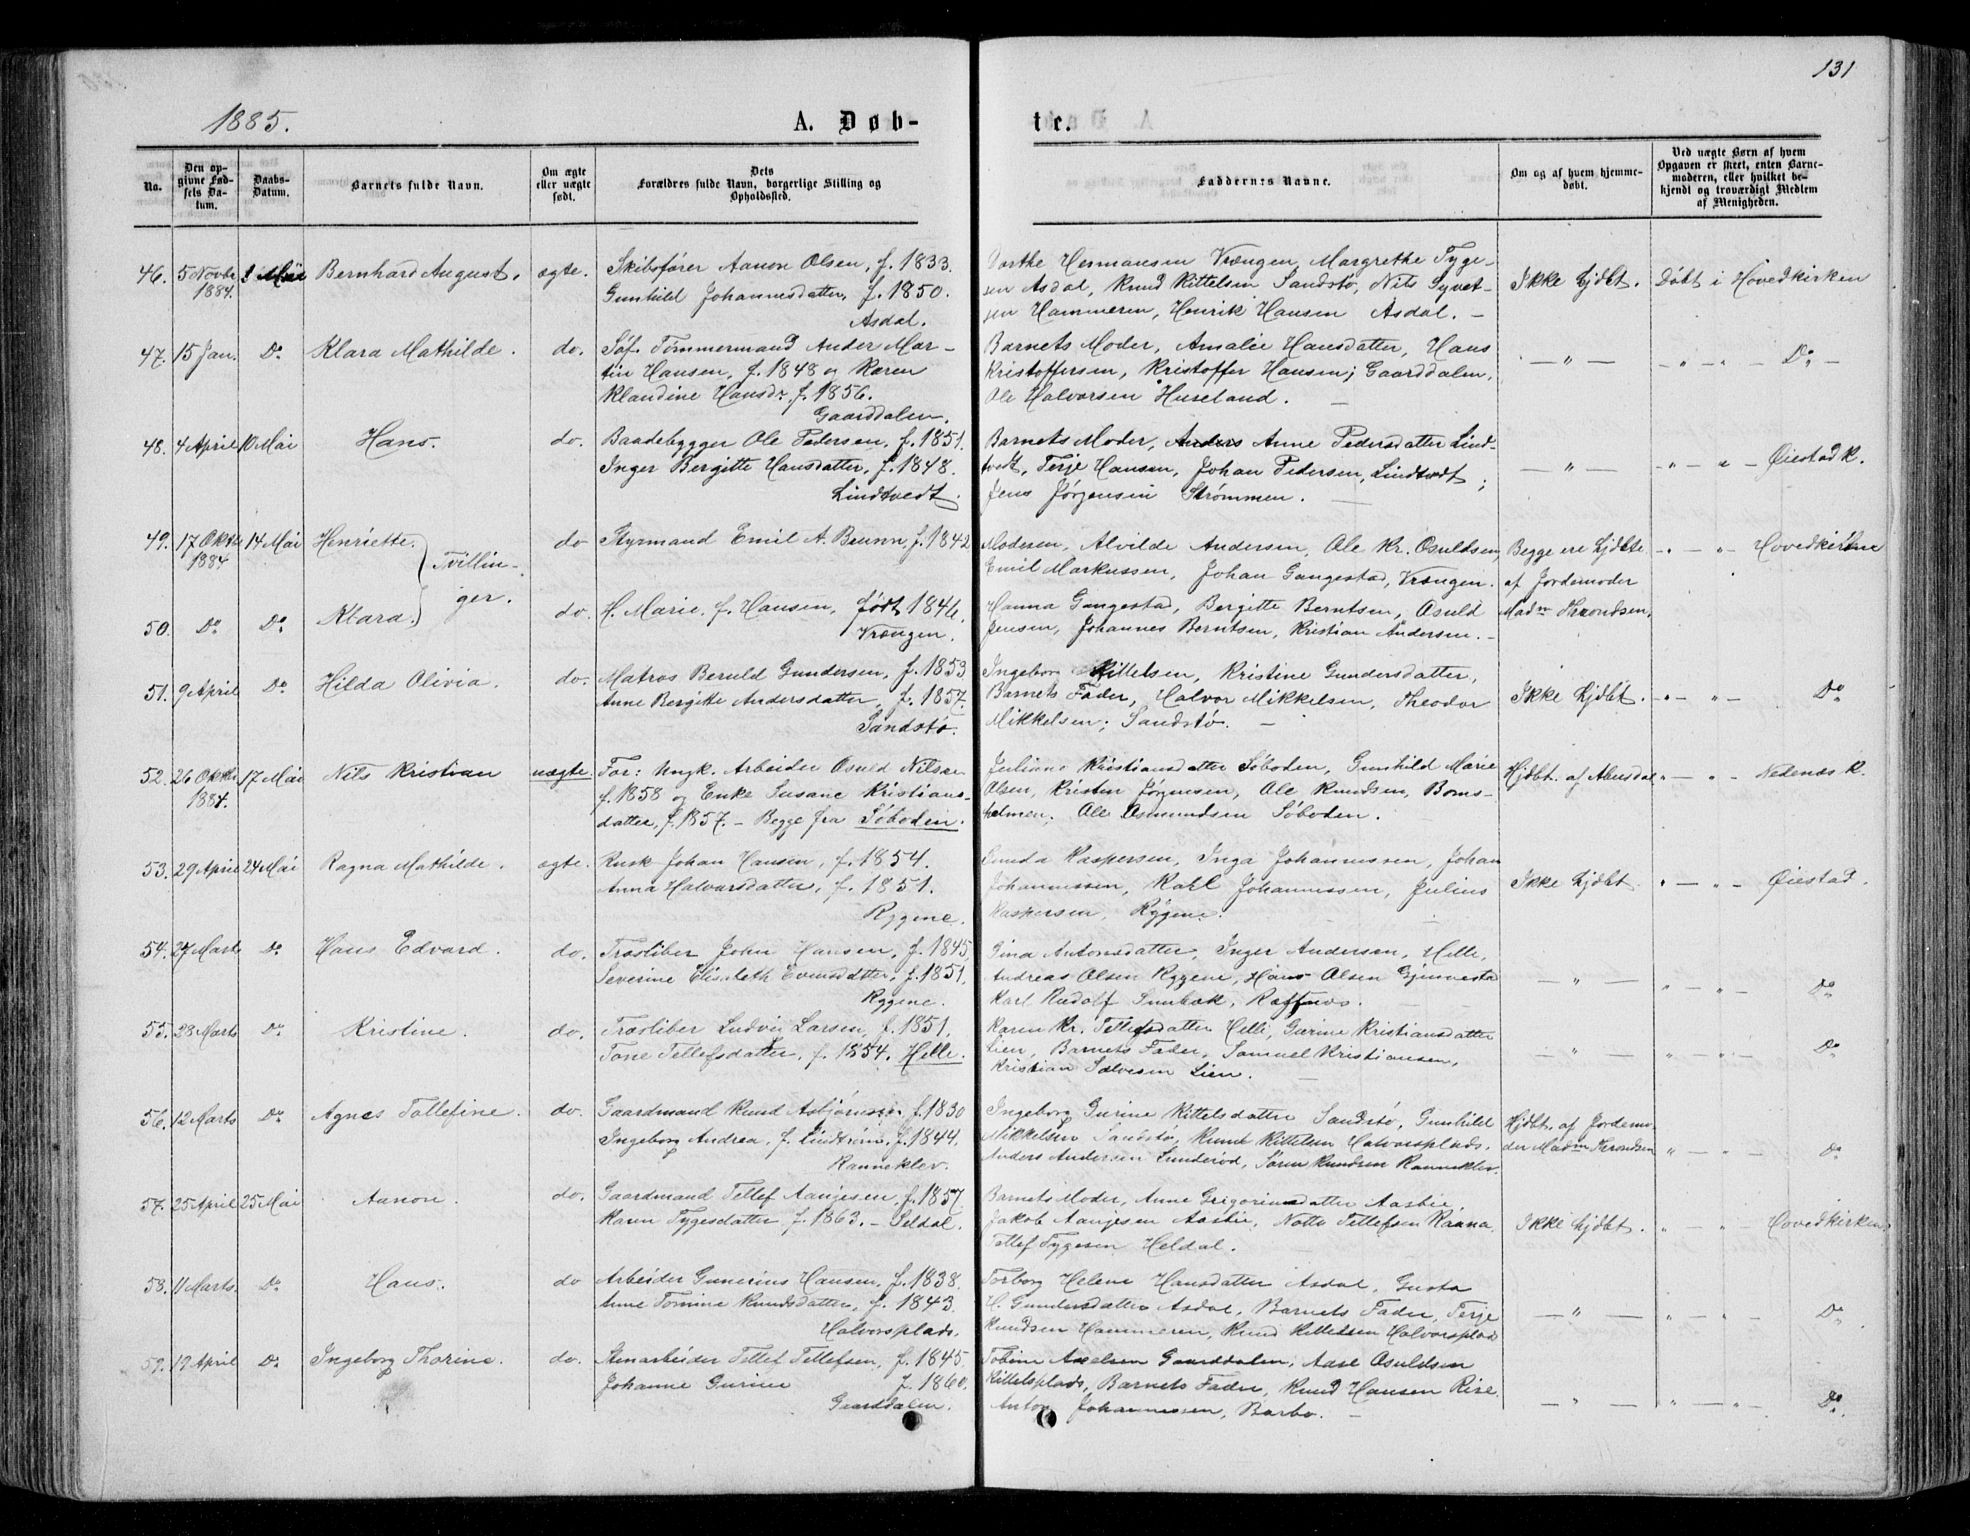 131
1885.
A. Døb-
te.
No.
Den op-
givne Fød-
sels Da-
tum.
Daabs-
Datum.
Barnets fulde Navn.
Om ægte
eller uægte
født.
Dets
Forældres fulde Navn, borgerlige Stilling og
Opholdssted.
Faddernes Navne.
Om og af hvem hjemme-
døbt.
Ved uægte Børn af hvem
Opgaven er skeet, enten Barne-
moderen, eller hvilket be-
kjendt og troværdigt Medlem
af Menigheden.
46. 5 Novbr 1884. 8 Mai Bernhard August. ægte.
Skibsfører Aanon Olsen, f. 1833.
Gunhild Johannesdatter, f. 1850.
Asdal.
Dorthe Hermansen Vrængen, Margrethe Tyge-
sen Asdal, Knud Kittelsen Sandstø, Nils Syvert-
sen Hammeren, Henrik Hansen Asdal. –
Ikke hjdbt. Døbt i Hovedkirken
47. 15 Jan. Do Klara Mathilde. do.
Søf. Tømmermand Ander Mar-
tin Hansen, f. 1848 og Karen
Klandine Hansdr. f. 1856.
Gaarddalen.
Barnets Moder, Amalie Hansdatter, Hans
Kristoffersen, Kristoffer Hansen; Gaarddalen,
Ole Halvorsen Huseland. –
— " — – " – " – Do –
48. 4 April 10 Mai Hans. do.
Baadebygger Ole Pedersen, f. 1851.
Inger Bergitte Hansdatter, f. 1848.
Lindtvedt.
Barnets Moder, Anders Anne Pedersdatter Lind-
tvedt, Terje Hansen, Johan Pedersen, Lindtvedt;
Jens Jørgensen Strømmen. –
— " — – " – " – Øiestad K.
49. 17 Oktbr 1884 14 Mai Henriette. } Tvillin- do
Styrmand Emil A. Beunn, f. 1842
Moderen, Alvilde Andersen, Ole Kr. Osuldsen,
Emil Markussen, Johan Gangestad, Vrængen.
Begge ere hjdbte
af Jordemoder
– " – " – Hovedkirkne
50. Do Do Klara. } ger. do.
H. Marie, f. Hansen, født 1846.
Vrængen.
Hanna Gangestad, Bergitte Berntsen, Osuld
Jensen, Johannes Berntsen, Kristian Andersen. –
Madm Throndsen.
51. 9 April Do Hilda Olivia. do.
Matros Beruld Gundersen, f. 1853
Anne Bergitte Andersdatter, f. 1857.
Sandstø.
Ingeborg Kittelsen, Kristine Gundersdatter,
Barnets Fader, Halvor Mikkelsen, Theodor
Mikkelsen; Sandstø. –
Ikke hjdbt. " – " – Do
52. 26 Oktbr 1884. 17 Mai Nils Kristian uægte.
Far: Ungk. Arbeider Osuld Nilsen
f. 1858 og Enke Susane Kristians-
datter, f. 1857. – Begge fra Søboden.
Juliane Kristiansdatter Søboden, Gunhild Marie
Olsen, Kristen Jørgensen, Ole Knudsen, Boms-
holmen; Ole Osmundsen Søboden.
Hjdbt. af Abusdal " – " – Nedenæs K.
53. 29 April 24 Mai Ragna Mathilde. ægte.
Kusk Johan Hansen, f. 1854.
Anna Halvorsdatter, f. 1851.
Rygene.
Kaspersen, Inga Johannessen, Johan
Johannessen, Karl Johannessen, Julius
Kaspersen, Rygene.
Ikke hjdbt. " – " – Øiestad.
54. 27 Marts Do Hans Edvard. do.
Træsliber John Hansen, f. 1845,
Severine Elisabeth Evensdatter, f. 1851,
Rygene.
Gina Antonsdatter, Inger Andersen, Helle,
Andreas Olsen Rygene, Hans Olsen
Karl Rudolf
— " — " – " – Do
55. 28 Marts Do Kristine. do.
Træsliber Ludvig Larsen, f. 1851,
Tone Tellefsdatter, f. 1854. Helle.
Karen Kr. Tellefsdatter Helle, Gurine Kristiansdatter
Lien, Barnets Fader, Samuel Kristiansen,
Kristian Salvesen Lien. –
— " — " – " – Do
56. 12 Marts Do Agnes Tallefine. do.
Gaardmand Knud Asbjørnsen, f. 1830
Ingeborg Andrea, f. Lindtrøm, f. 1844.
Ranneklev.
Ingeborg Gurine Kittelsdatter Sandstø, Gunhild
Mikkelsen Sandstø, Knud Kittelsen Halvorsplads,
Anders Andersen Lunderød, Søren Knudsen Ranneklev.
Hjdbt. af Jordemo-
der Madm Throndsen
" – " – Do
57. 25 April 25 Mai Aanon. do.
Gaardmand Tellef Aanjesen, f. 1857
Karen Tygesdatter, f. 1863. – Seldal.
Barnets Moder, Anne Grigoriusdatter Aasbie,
Jakob Aanjesen Aasbie, Notto Tellefsen Raana,
Tellef Tygesen Heldal.
Ikke hjdbt. " – " – Hovedkirken
58. 11 Marts. Do Hans. do
Arbeider Gunerius Hansen, f. 1838.
Anne Tomine Knudsdatter, f. 1843.
Halvorsplads.
Torborg Helene Hansdatter Asdal, Gusta
H. Gundersdatter Asdal, Barnets Fader, Terje
Knudsen Hammeren, Knud Kittelsen Halvorsplad
— " — " – " – Do
59. 12 April Do Ingeborg Thorine. do.
Stenarbeider Tellef Tellefsen, f. 1845.
Johanne Gurine f. 1860.
Gaarddalen.
Tobine Axelsen Gaarddalen, Aase Osuldsen
Kittelsplads, Barnets Fader, Knud Hansen Rise.
Anton Johannessen, Barbo. –
— " — " – " – Do